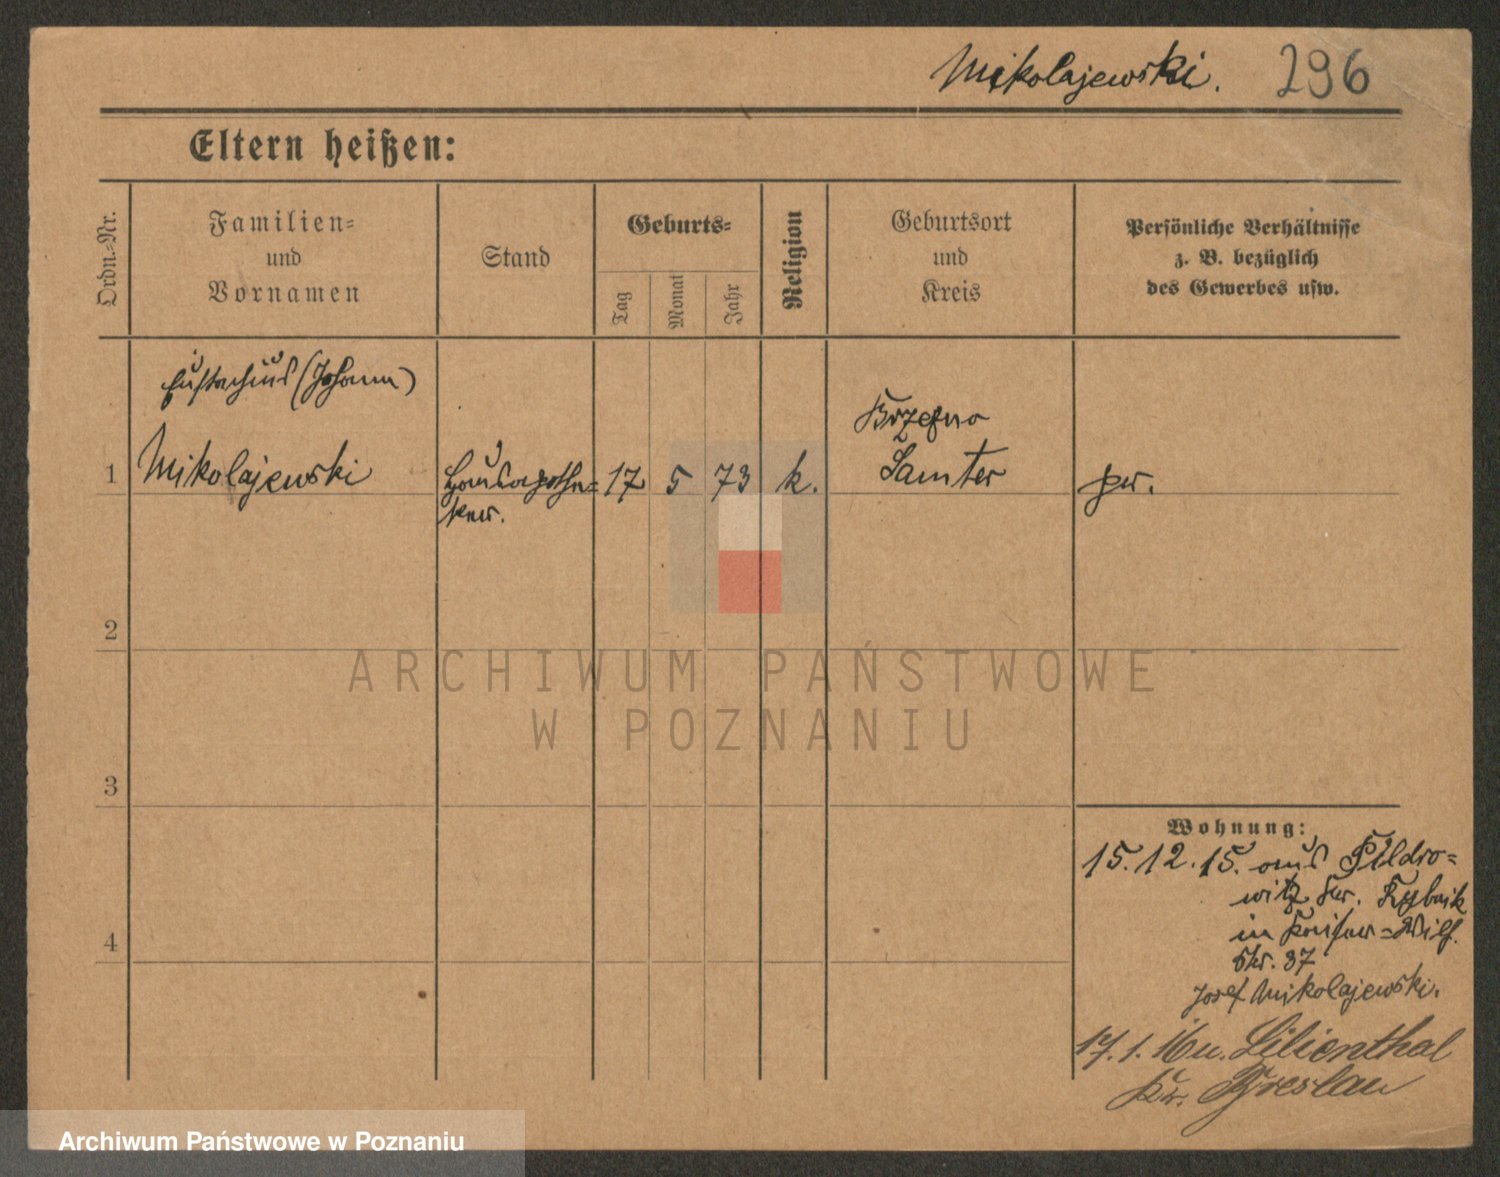 Mikolajewski. 296
Eltern heißen:
Ordn.-Nr.
Familien-
und
Vornamen
Stand
Geburts-
Tag
Monat
Jahr
Religion
Geburtsort
und
Kreis
Persönliche Verhältnisse
z. B. bezüglich
des Gewerbes usw.
Eustachius (Johann)
Mikolajewski
1
17
5
73
k.
Brzezno
Samter
pr.
2
3
4
Wohnung:
15.12.15. aus
witz Kr. Rybnik
in Kaiser-Wilh.
Str. 37
Josef Mikolajewski.
17. 1. 16 n. Lilienthal
Kr. Breslau
ARCHIWUM PAŃSTWOWE
W POZNANIU
Archiwum Państwowe w Poznaniu